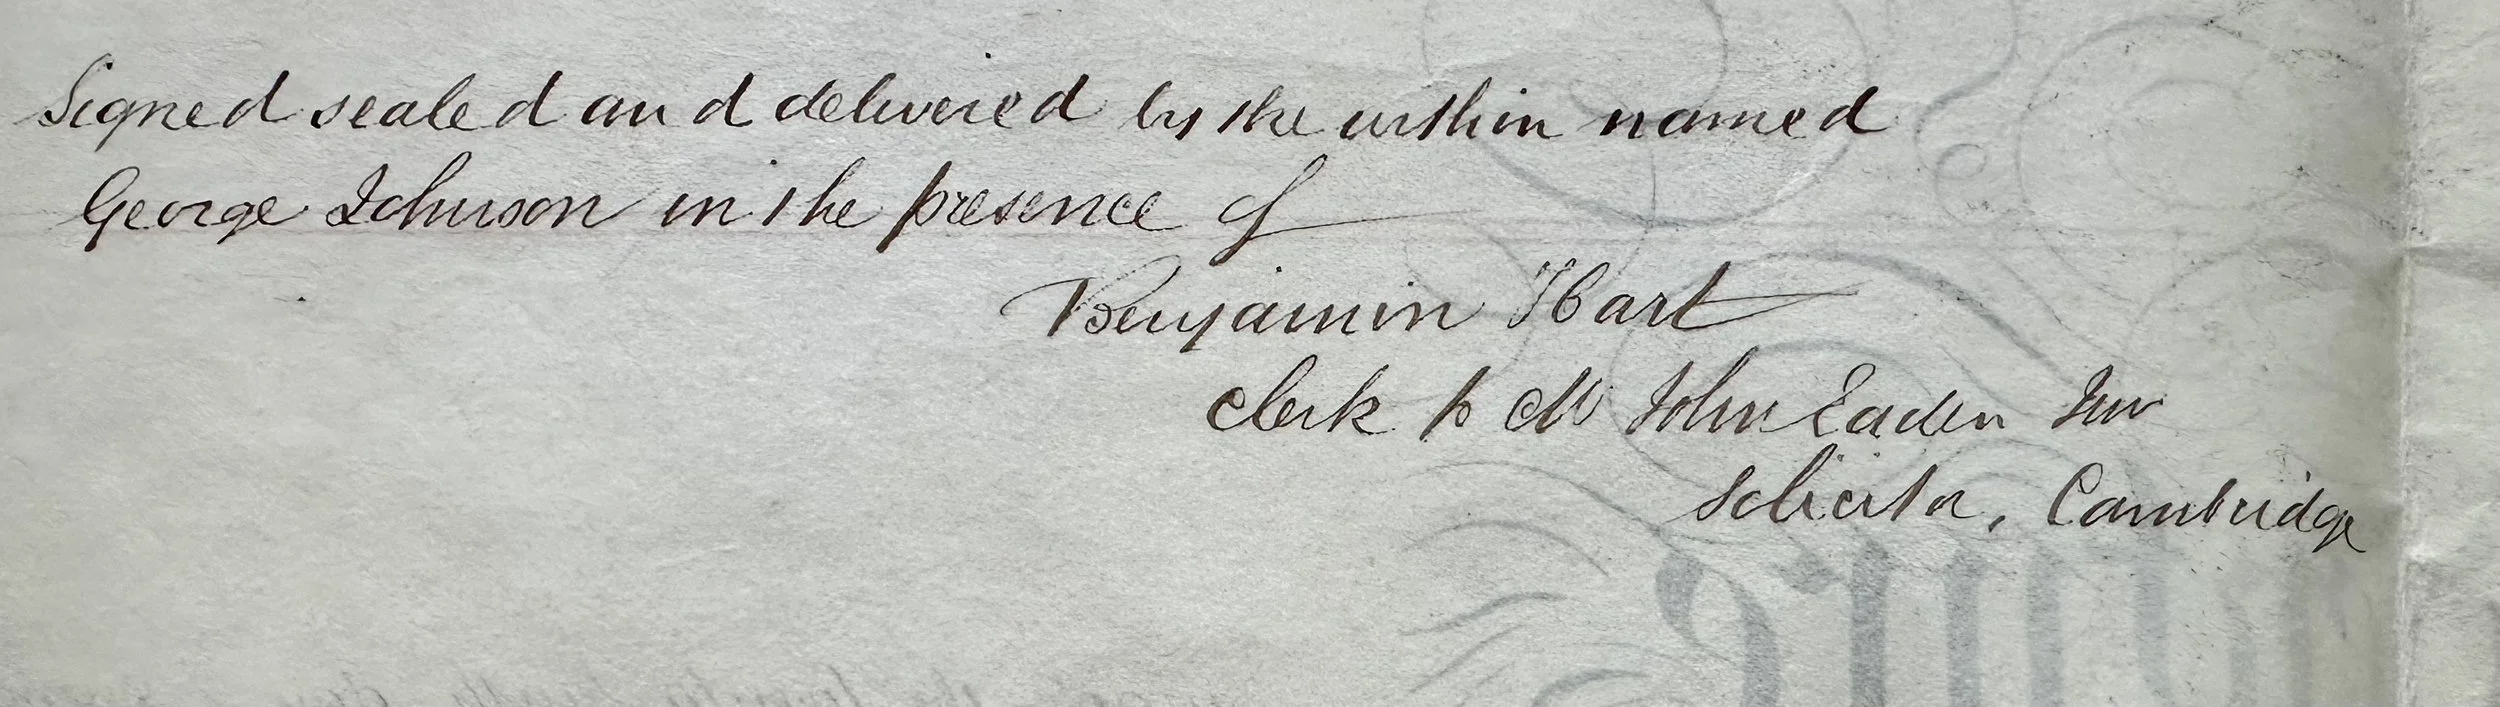 Signed sealed and delivered by the within named
George Johnson in the presence of
Benjamin Hart
Clerk to Mr John Eaden Junr
Solicitor, Cambridge